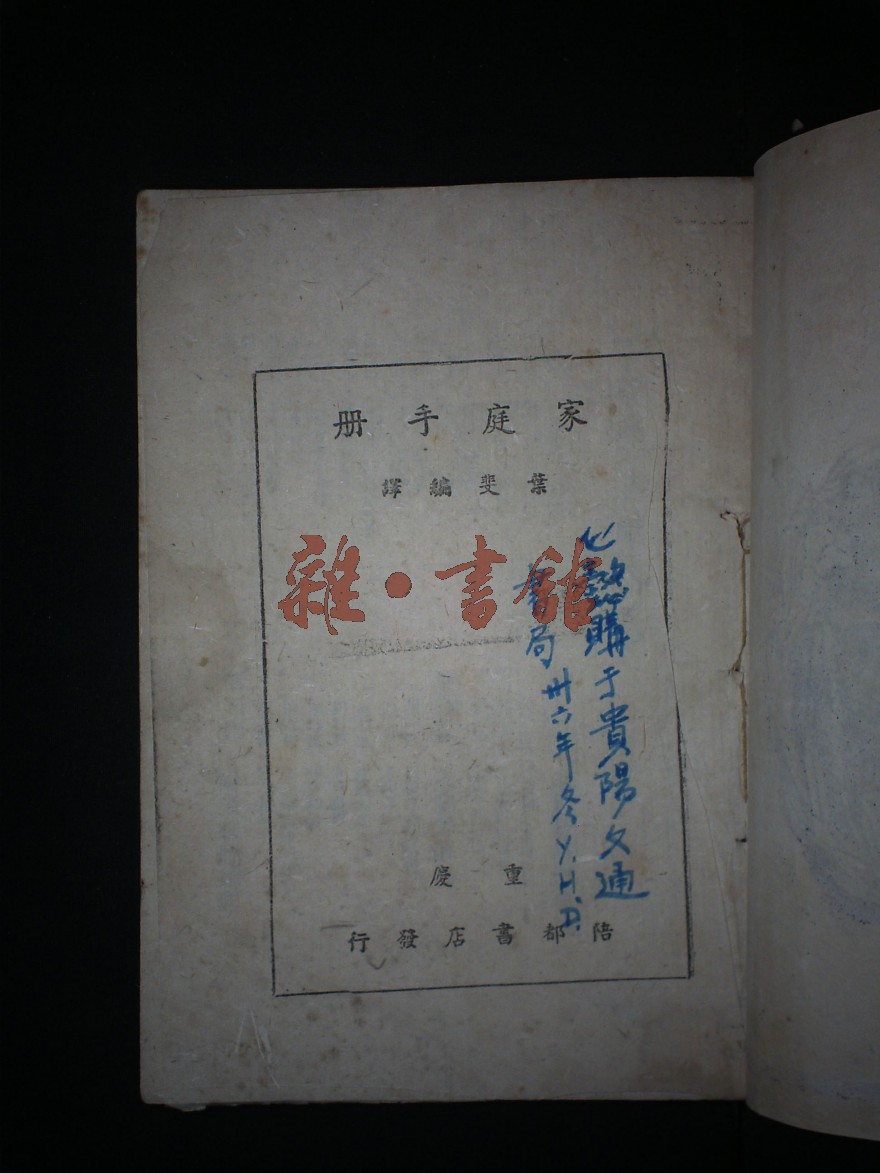 家庭手册
葉斐編譯
雜·書館
懿購于貴陽文通
書局 卅六年冬 Y.H.D.
重慶
陪都書店發行